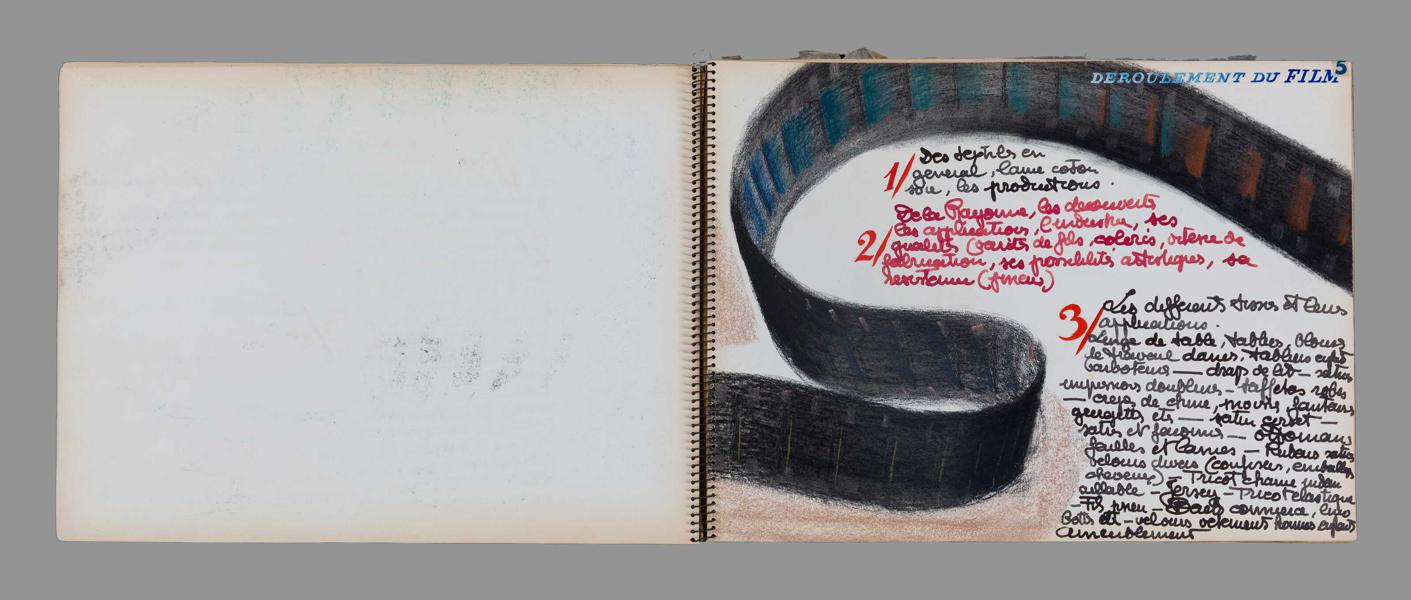 5
DEROULEMENT DU FILM
1/ Des textiles en
general, laine coton
soie, les productions.
2/ De la Rayonne, les decouverts
les applications, l'industrie, ses
qualités (variété de fils, coloris, de
fabrication, ses possibilités artistiques, sa
resistance (pneus)
3/ Les differents tissus et leurs
applications.
Linge de table, tabliers, blouses
de travail dames, tabliers
— drap de lit — satin
doublures — taffetas robes
— crepe de chine, moire, fantaisie
georgette etc — satin corset —
satin et faconnés — Ottomans
failles et lames — Rubans satin
velours divers (confiseurs, emballage
cheveux) — Tricot chaine indem
aillable — Jersey — Tricot élastique
— Fils pneu — Bas
— velours vetement hommes enfants
Ameublement